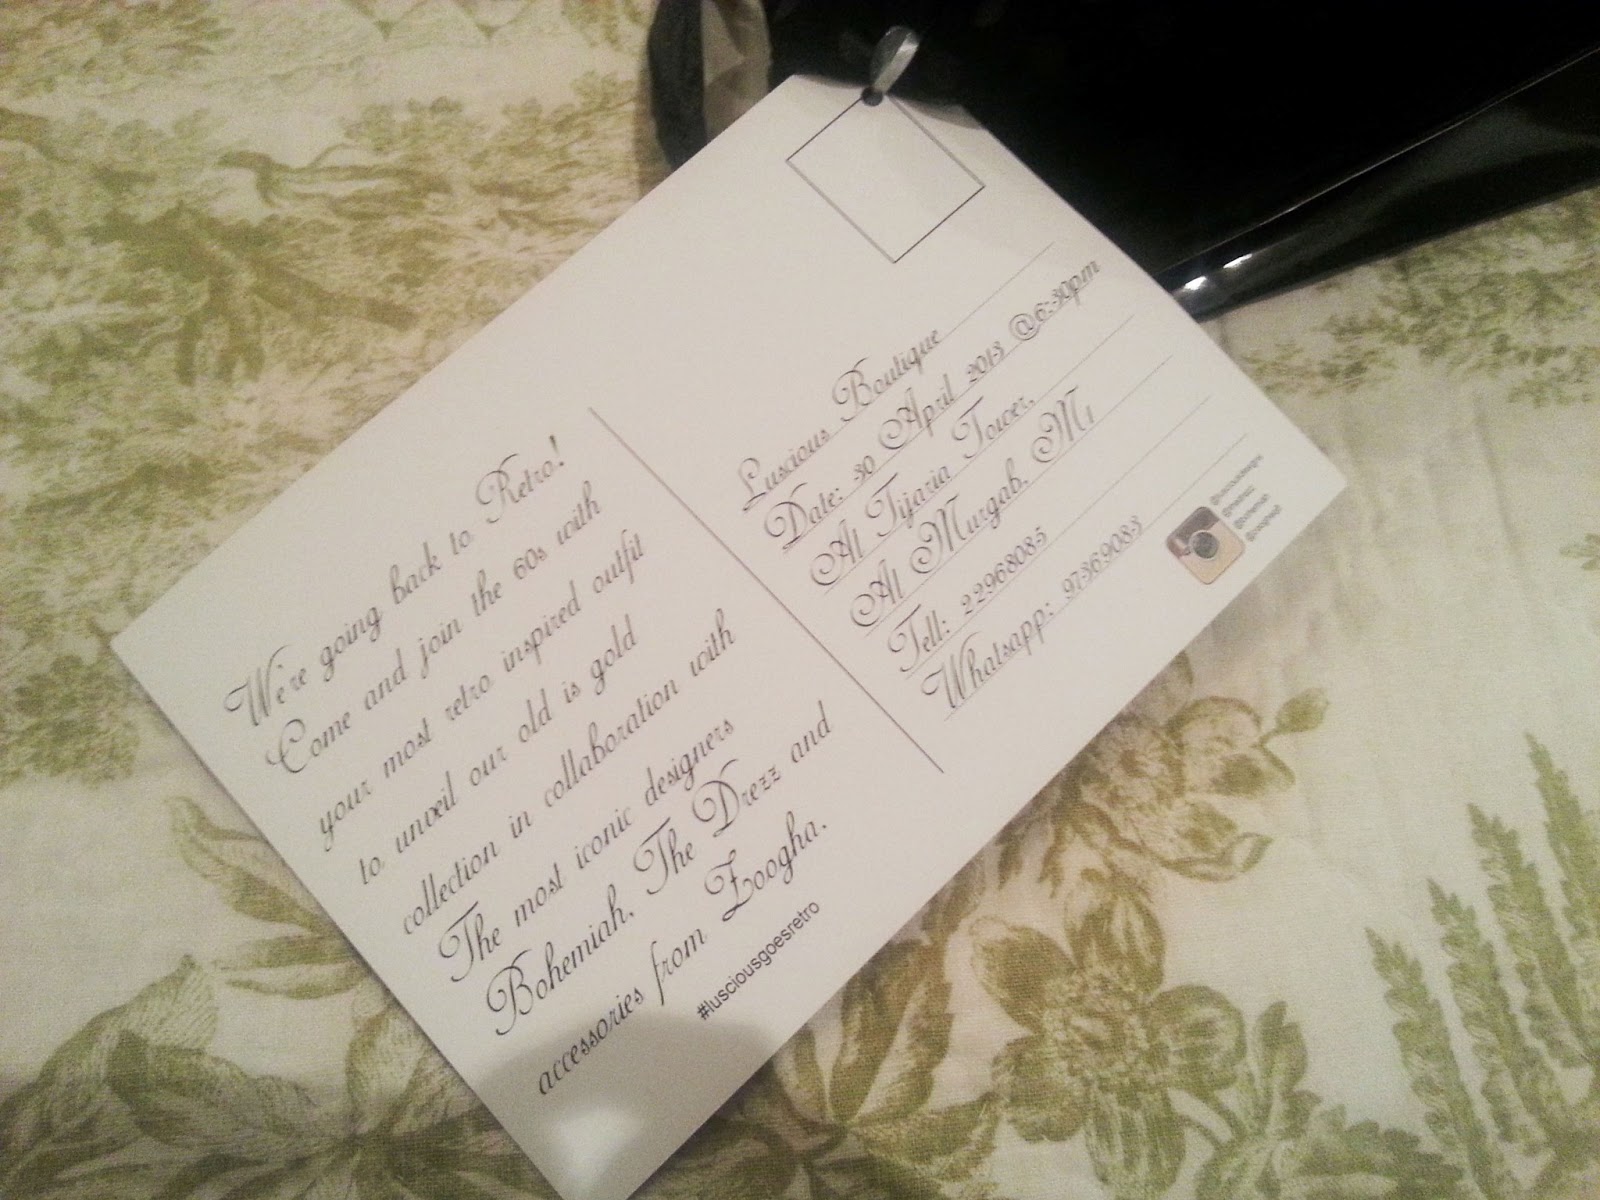 We're going back to Retro!
Come and join the 60s with
your most retro inspired outfit
to unveil our old is gold
collection in collaboration with
The most iconic designers
Bohemiah, The Drezz and
accessories from Zoogha.
#lusciousgoesretro
Luscious Boutique
Date: 30 April 2013 @6:30pm
Al Tijaria Tower,
Al Murgab, M1
Tell: 22968085
Whatsapp: 97369083